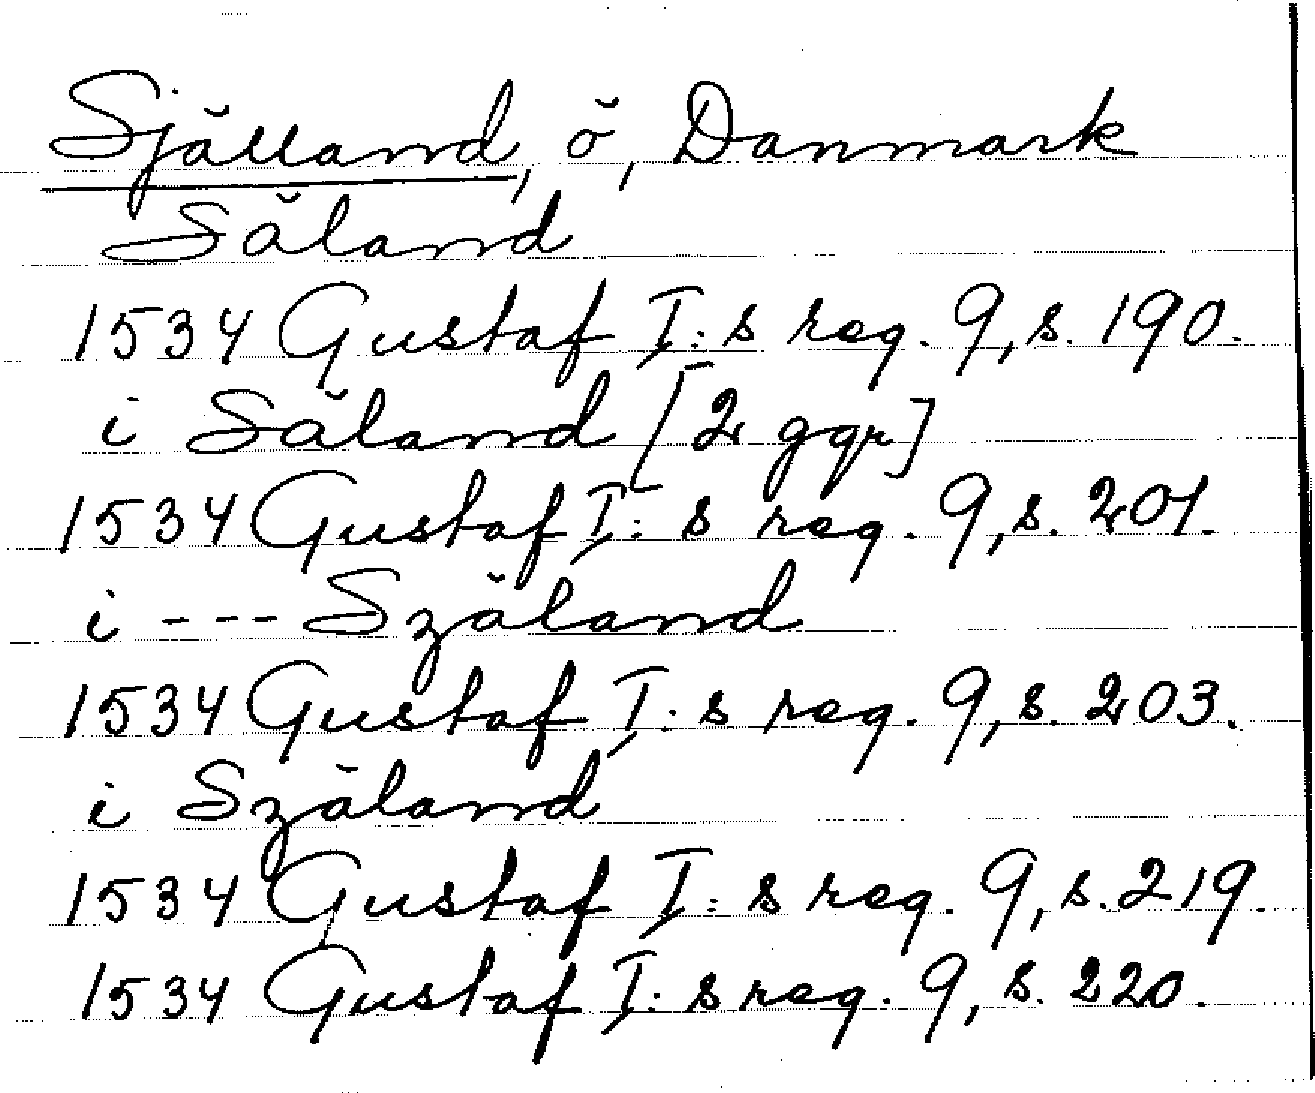 Själland, ö, Danmark
Säland
1534 Gustaf I:s reg. 9, s. 190.
i Säland [2 ggr]
1534 Gustaf I:s reg. 9, s. 201.
i --- Szäland
1534 Gustaf I:s reg. 9, s. 203.
i Szäland
1534 Gustaf I:s reg. 9, s. 219.
1534 Gustaf I:s reg. 9, s. 220.